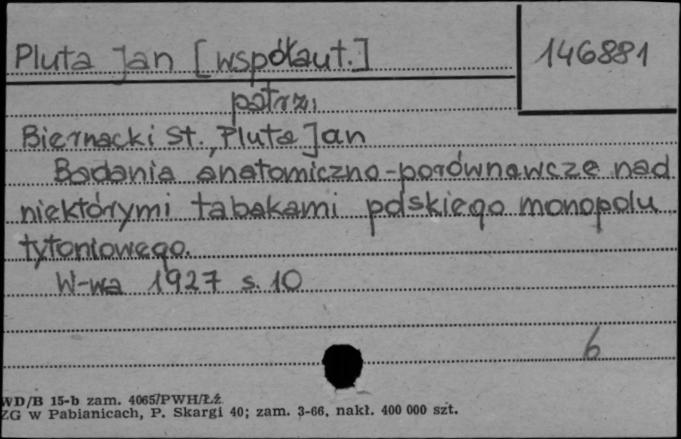 Pluta Jan [współaut.]
146881
patrz:
Biernacki St., Pluta Jan
Badania anatomiczno-porównawcze nad
niektórymi tabakami polskiego monopolu
tytoniowego.
W-wa 1927 s. 10
6
WD/B 15-b zam. 4065/PWH/Łź
ZG w Pabianicach, P. Skargi 40; zam. 3-66, nakł. 400 000 szt.